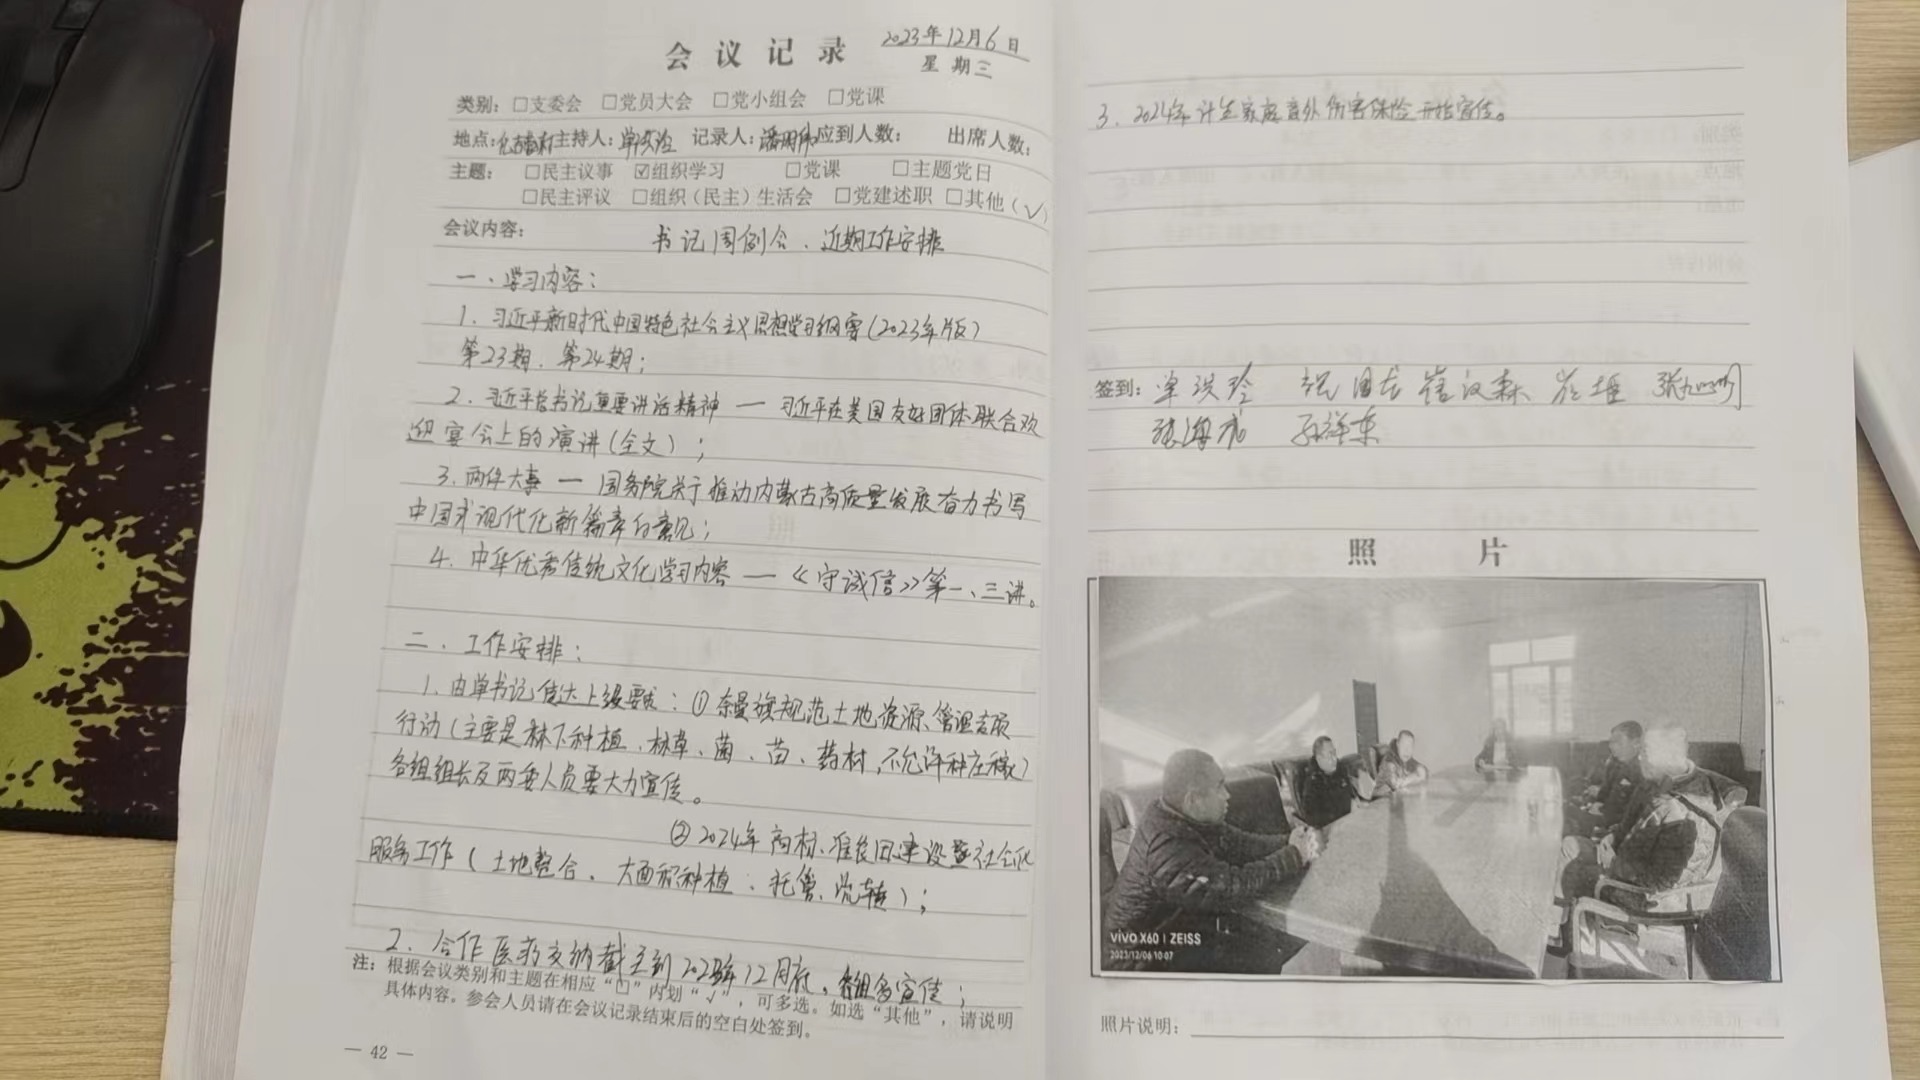 会议记录
2023年12月6日
星期三
类别：□支委会 □党员大会 □党小组会 □党课
地点： 主持人：单洪玲 记录人： 应到人数： 出席人数：
主题： □民主议事 ☑组织学习 □党课 □主题党日
□民主评议 □组织（民主）生活会 □党建述职 □其他（√）
会议内容： 书记周例会、近期工作安排
一、学习内容：
1、习近平新时代中国特色社会主义思想学习纲要(2023年版)
第23期、第24期；
2、习近平总书记重要讲话精神 — 习近平在美国友好团体联合欢
迎宴会上的演讲(全文)；
3、两件大事 — 国务院关于推动内蒙古高质量发展奋力书写
中国式现代化新篇章的意见；
4、中华优秀传统文化学习内容 —《守诚信》第一、三讲。
二、工作安排：
1、由单书记传达上级要求：① 奈曼旗规范土地资源、管理专项
行动(主要是林下种植、林草、菌、苗、药材，不允许种庄稼)
各组组长及两委人员要大力宣传。
② 2024年高标准农田建设暨社会化
服务工作(土地整合、大面积种植、托管、流转)；
2、合作医疗交纳截至到2023年12月底，各组多宣传；
注：根据会议类别和主题在相应“□”内划“√”，可多选。如选“其他”，请说明
具体内容。参会人员请在会议记录结束后的空白处签到。
— 42 —
3、2024年计生家庭意外伤害保险开始宣传。
签到：单洪玲 崔汉森
张海成 孙祥东
照片
vivo X60 | ZEISS
2023/12/06 10:07
照片说明：